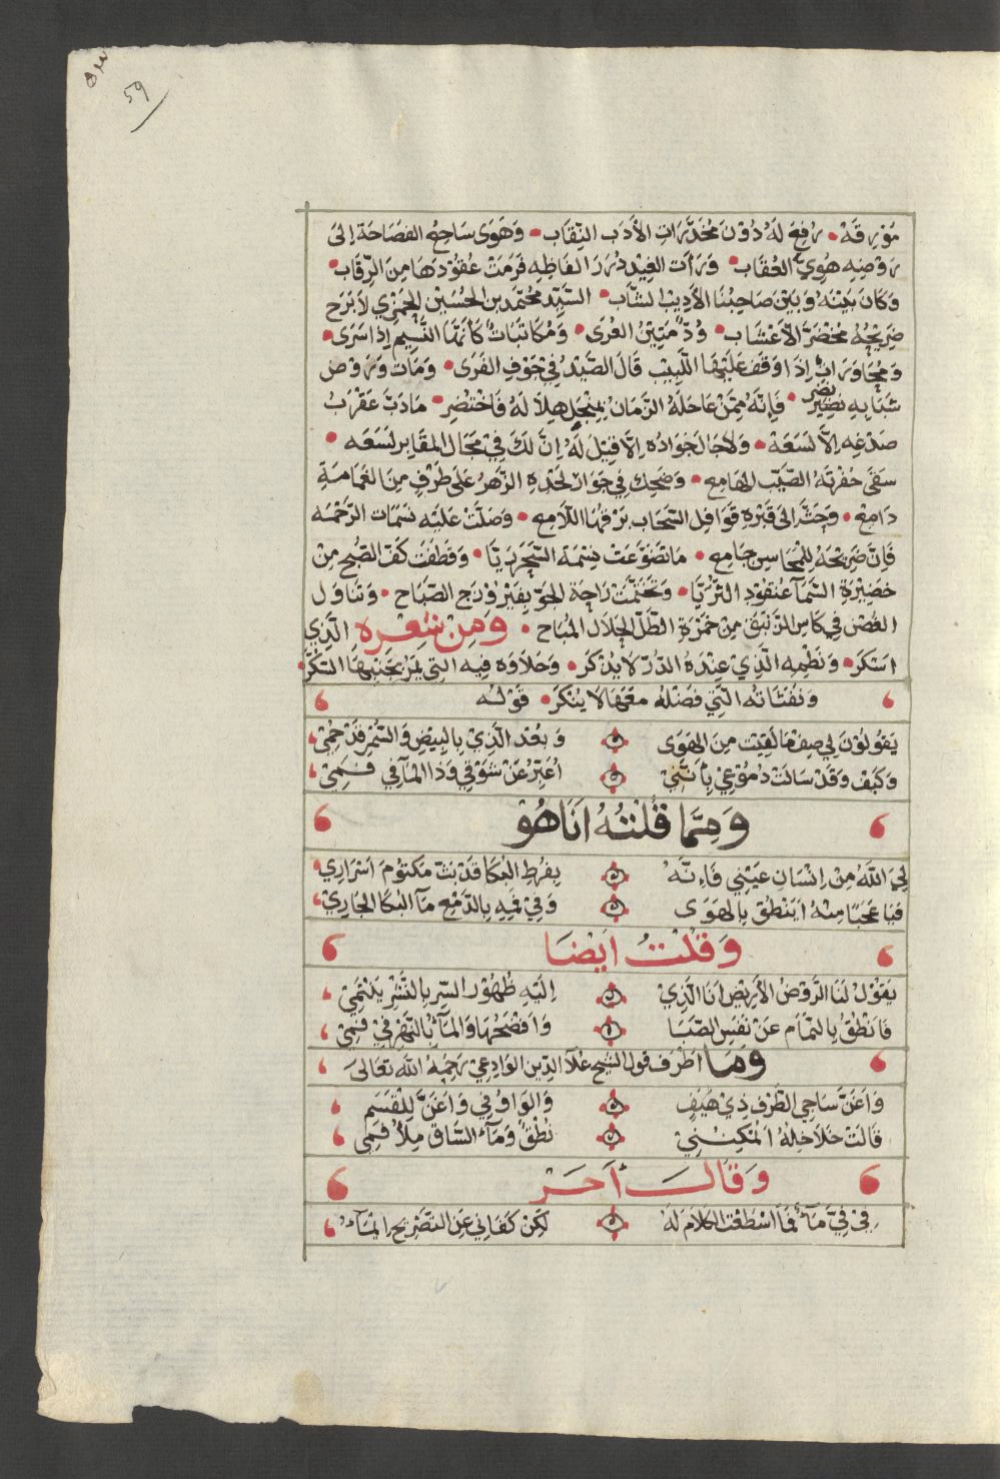 59
مُوْرِقَهْ • رُفِعَ لَهُ دُوْنَ مُخَدَّرَاتِ الأَدَبِ النِّقَاب • وَهَوَى سَاجِعُ الفَصَاحَةِ إلىَ
رَوْضِهِ هُوِيَّ العُقَاب • وَرَأت الغِيْد دُرَرَ الفَاظِهِ فَرَمَتْ عُقُوْدَهَا مِنَ الرِّقَاب •
وَكَانَ بَيْنَهُ وَبَيْنَ صَاحِبْنَا الأَدِيْبِ الشَّاب • السَّيِّد مُحَمَّد بن الحُسَيْن الحَمْزِي لاَ بَرَح
ضَرِيْحُهُ مُخْضَرَّ الأَعْشَاب • وُدٌّ مَتِيْنُ العُرَى • وَمُكَاتَبَاتٌ كَأَنَّهَا النَّسِيمَ إِذَا سَرَى •
وَمُحَاوَرَاتٌ إِذَا وَقَفَ عَلَيْهَا اللَّبِيْب قَالَ الصَّيْدُ فِي جَوْفِ الفَرَى • وَمَات وَرَوْض
شَبَابِهِ نَضِيْر نضِر • فَإِنَّهُ مِمَّنْ عَاجَلَهُ الزَّمَان بِمِنْجَلِ هِلاَلِهُ فَاخْتُضِر • مَا دَبَّ عَقْرَبُ
صُدْغِهِ اِلاَّ لَسَعَهْ • وَلاَ جَالَ جَوَادُه اِلاَّ قِيْلَ لَهُ اِنَّ لَكَ فِيْ مَجَال المَقَابِر لَسَعَه •
سَقَى حُفْرَتَهُ الصَّيِّب الهَامِع • وَضَحِك فِي جَوَانِ لَحْدِهِ الزَّهْرُ عَلَى طَرْفٍ مِنَ الغَمَامَةِ
دَامِعْ • وَحَثَّ اِلَى قَبْرِهِ قَوَافِل السَّحَاب بَرْقُهَا اللاَّمِع • وَصَلَّتْ عَلَيْه نَسَمَات الرَّحْمَه
فَاِنَّ ضَرِيْحَهُ لِلْمَحَاسِن جَامِع • مَا تَضَوَّعَتْ نِسْمَة السَّحَر رَيَّا • وَقَطَفَتْ كَفّ الصُّبْح مِنْ
خَضِيْرَةِ السَّمَآ عُنْقُوْدِ الثُّرَيَّا • وَتَخَتَّمَتْ رَاحَة الجَوِّ بِفَيْرُوْزَج الصَّبَاح • وَتَنَاوَل
الغُصْن فِي كَاسِ الزَّنْبَقِ مِنْ خَمْرَةِ الطَّلّ الحَلاَل المُبَاح • وَمِنْ شِعْرِه الَّذِي
اَسْكَر • وَنَظْمِه الَّذِيْ عِنْدَهُ الدُّرّ لاَ يُذْكَر • وَحَلاَوَه فِيْه التِي يَمُرّ بِجَنْبِهَا السُّكَّر •
وَنَفَثَاتُه الَّتِي فَضْلُهُ مَعَهَا لاَ يُنْكَرْ • قَوْلُه
يَقُولُوْنَ لِي صِفْ مَا لَقِيْت مِنَ الهَوَى وَبُعْد الَّذِيْ بِالبِيْضِ وَالسُّمْرِ قَدْ حُمِيْ
وَكَيْفَ وَقَدْ سَالَتْ دُمُوْعِيْ بِأَنَّنِيْ اُعَبِّرُ عَنْ شَوْقِي وَذَا المَآ فِي فَمِيْ
وَمِمَّا قُلْتُهُ اَنَا هُوْ
لِحَى اللَّهُ مِنْ اِنْسَانِ عَيْنِي فَاِنَّهُ بِفَرْطِ البُكَا قَدْ بَثّ مَكْتُوْمَ اَسْرَارِي
فَيَا عَجَبًا مِنْهُ اَيَنْطُقُ بِالهَوَى وَفِيْ فَمِهِ بِالدَّمْعِ مَآ البُكَا الجَارِيْ
وَقُلْتُ اَيْضَا
يَقُوْلُ لَنَا الرَّوْضُ الأَرِيْض اَنَا الَّذِيْ اِلَيْهِ ظُهُوْر السِّرِّ بِالنَّشْرِ يَنْتَمِيْ
فَانْطُقُ بِالنَّمَّام عَنْ نَفَسِ الصَّبَا وَاَفْضَحُهَا وَالمَآءُ بِالنَّهْرِ فِيْ فَمِيْ
وَمَا اَطْرَف قول الشيخ عَلاَ الدِّين الوَادِعِيّ رَحِمَهُ الله تَعَالىَ
وَاَغَنّ سَاجِي الطَّرْف ذِيْ هَيَفٍ وَالوَاوُ فِي وَاَغَنّ لِلْقَسَمِ
قَالَتْ خَلاَخِلُهُ اَلَمْكِنُنِيْ نُطْقٌ وَمَآء السَّاق مِلأُ فَمِي
وَقَالَ اَخَر
فِيْ فِيَّ مَآءٌ فَمَا اسْطَعْتُ الكَلاَمَ لَهُ لَكِنْ كَفَانِي عَنِ التَّصْرِيْحِ اِيْمَآءُ